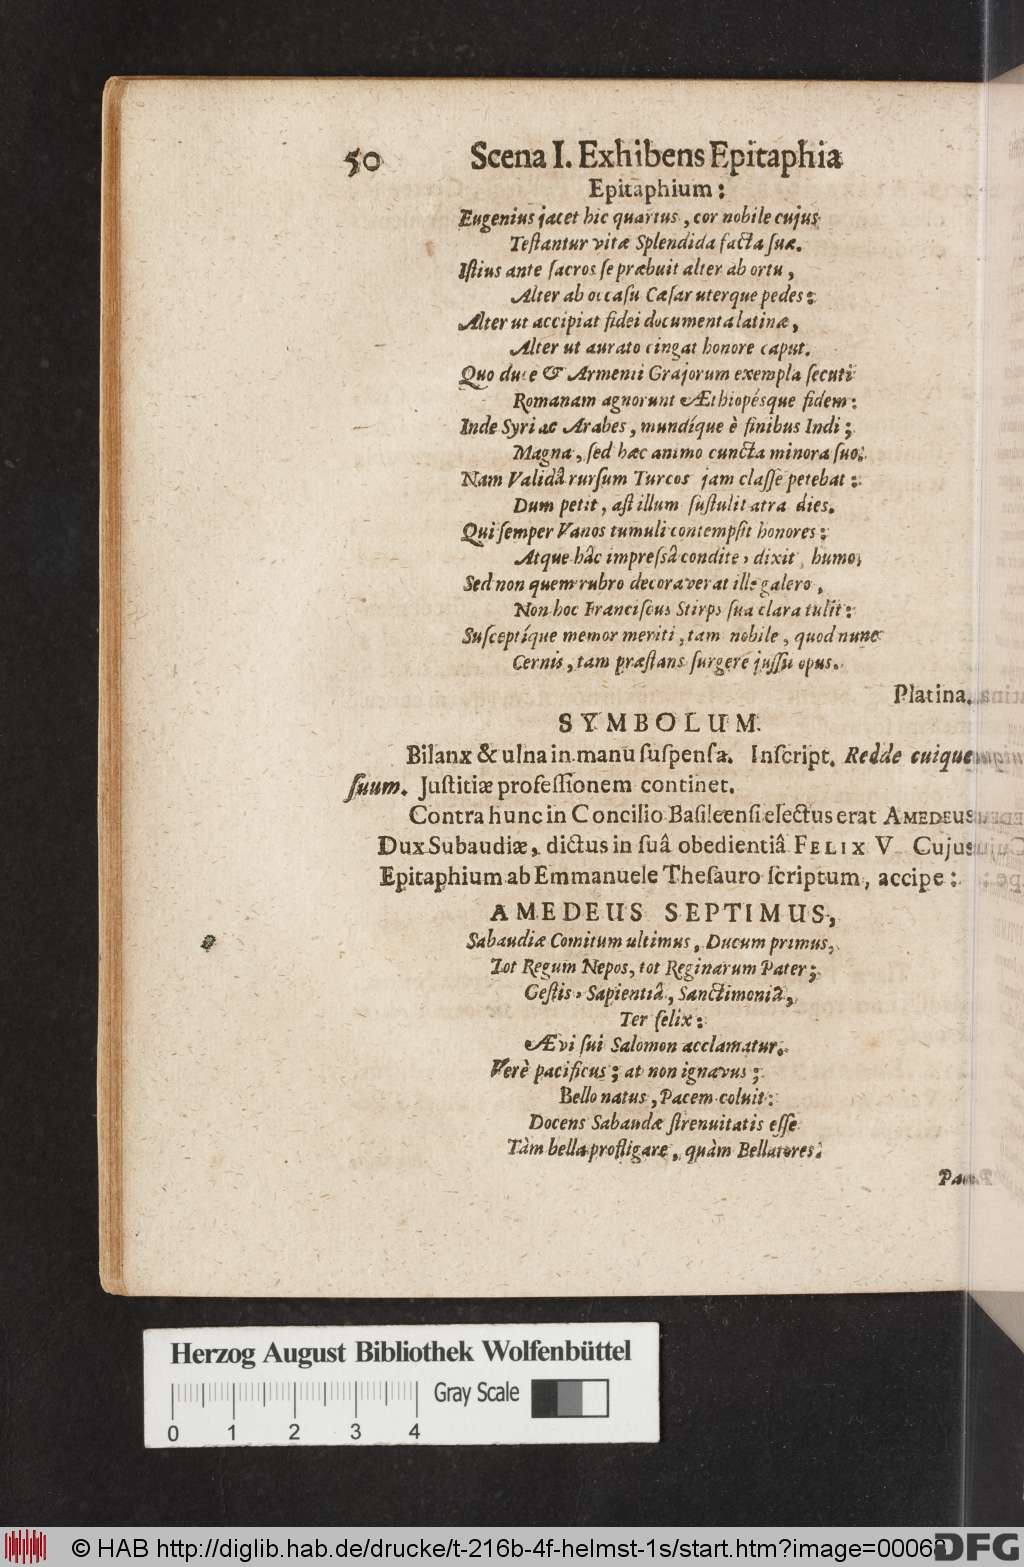 50 Scena I. Exhibens Epitaphia
Epitaphium:
Eugenius jacet hic quartus, cor nobile cujus
Teſtantur vitæ Splendida facta ſuæ.
Iſtius ante ſacros ſe præbuit alter ab ortu,
Alter ab occaſu Cæſar uterque pedes:
Alter ut accipiat fidei documenta latinæ,
Alter ut aurato cingat honore caput.
Quo duce & Armenii Grajorum exempla ſecuti
Romanam agnorunt Æthiopésque fidem:
Inde Syri ac Arabes, mundíque è finibus Indi;
Magna, ſed hæc animo cuncta minora ſuo.
Nam Validâ rurſum Turcos jam claſſe petebat:
Dum petit, aſt illum ſuſtulit atra dies.
Qui ſemper Vanos tumuli contempſit honores:
Atque hâc impreſsâ condite, dixit, humo,
Sed non quem rubro decoraverat ille galero,
Non hoc Franciſcus Stirps ſua clara tulit:
Suſceptíque memor meriti, tam nobile, quod nunc
Cernis, tam præſtans ſurgere juſſit opus.
Platina.
SYMBOLUM.
Bilanx & ulna in manu ſuſpenſa. Inſcript. Redde cuique
ſuum. Juſtitiæ profeſſionem continet.
Contra hunc in Concilio Baſileenſi electus erat AMEDEUS
Dux Subaudiæ, dictus in ſuâ obedientiâ FELIX V Cujus
Epitaphium ab Emmanuele Theſauro ſcriptum, accipe:
AMEDEUS SEPTIMUS,
Sabaudiæ Comitum ultimus, Ducum primus,
Tot Regum Nepos, tot Reginarum Pater;
Geſtis, Sapientiâ, Sanctimoniâ,
Ter felix:
Ævi ſui Salomon acclamatur.
Verè pacificus; at non ignavus;
Bello natus, Pacem coluit:
Docens Sabaudæ ſtrenuitatis eſſe
Tàm bella profligare, quàm Bellatores.
Herzog August Bibliothek Wolfenbüttel
Gray Scale
0 1 2 3 4
© HAB http://diglib.hab.de/drucke/t-216b-4f-helmst-1s/start.htm?image=00068
DFG